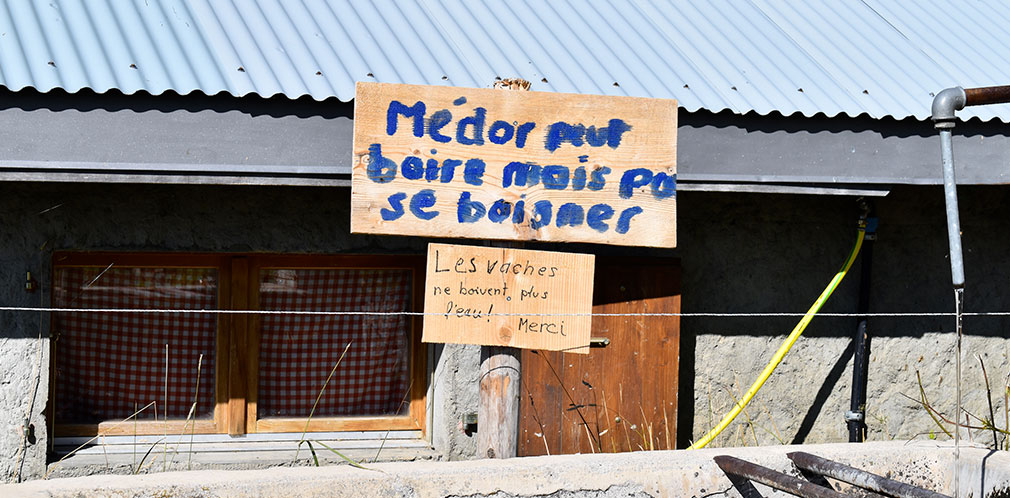 Médor peut
boire mais pa
se baigner
Les vaches
ne boivent plus
l'eau!
Merci